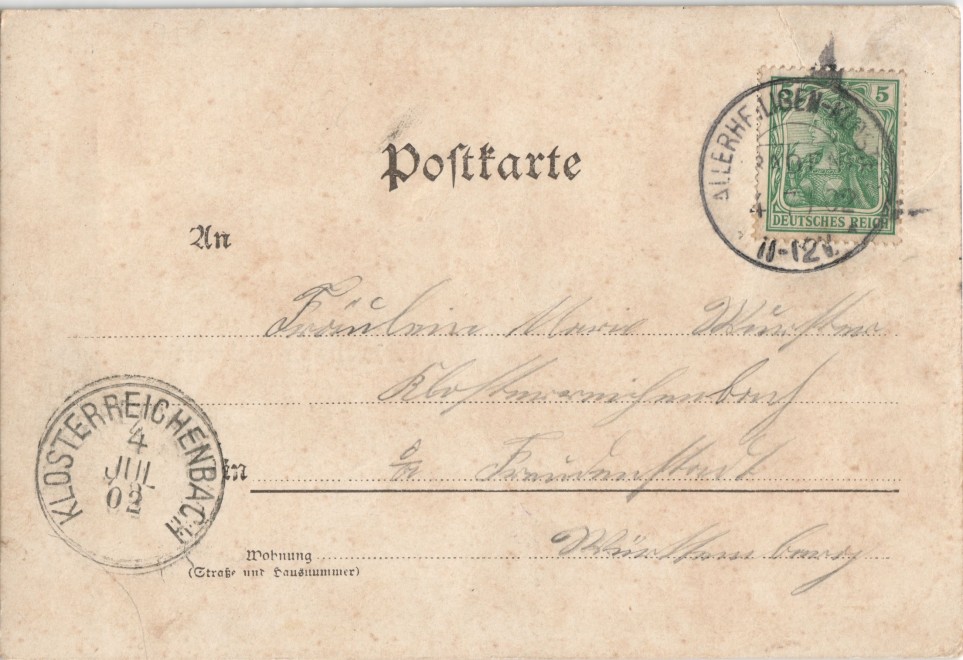 Postkarte
5
DEUTSCHES REICH
ALLERHEILIGEN-
4
11-12V.
An
Fräulein Marie Wurster
Klosterreichenbach
in
o/a Freudenstadt
Württemberg
KLOSTERREICHENBACH
4
JUL
02
Wohnung
(Straße und Hausnummer)